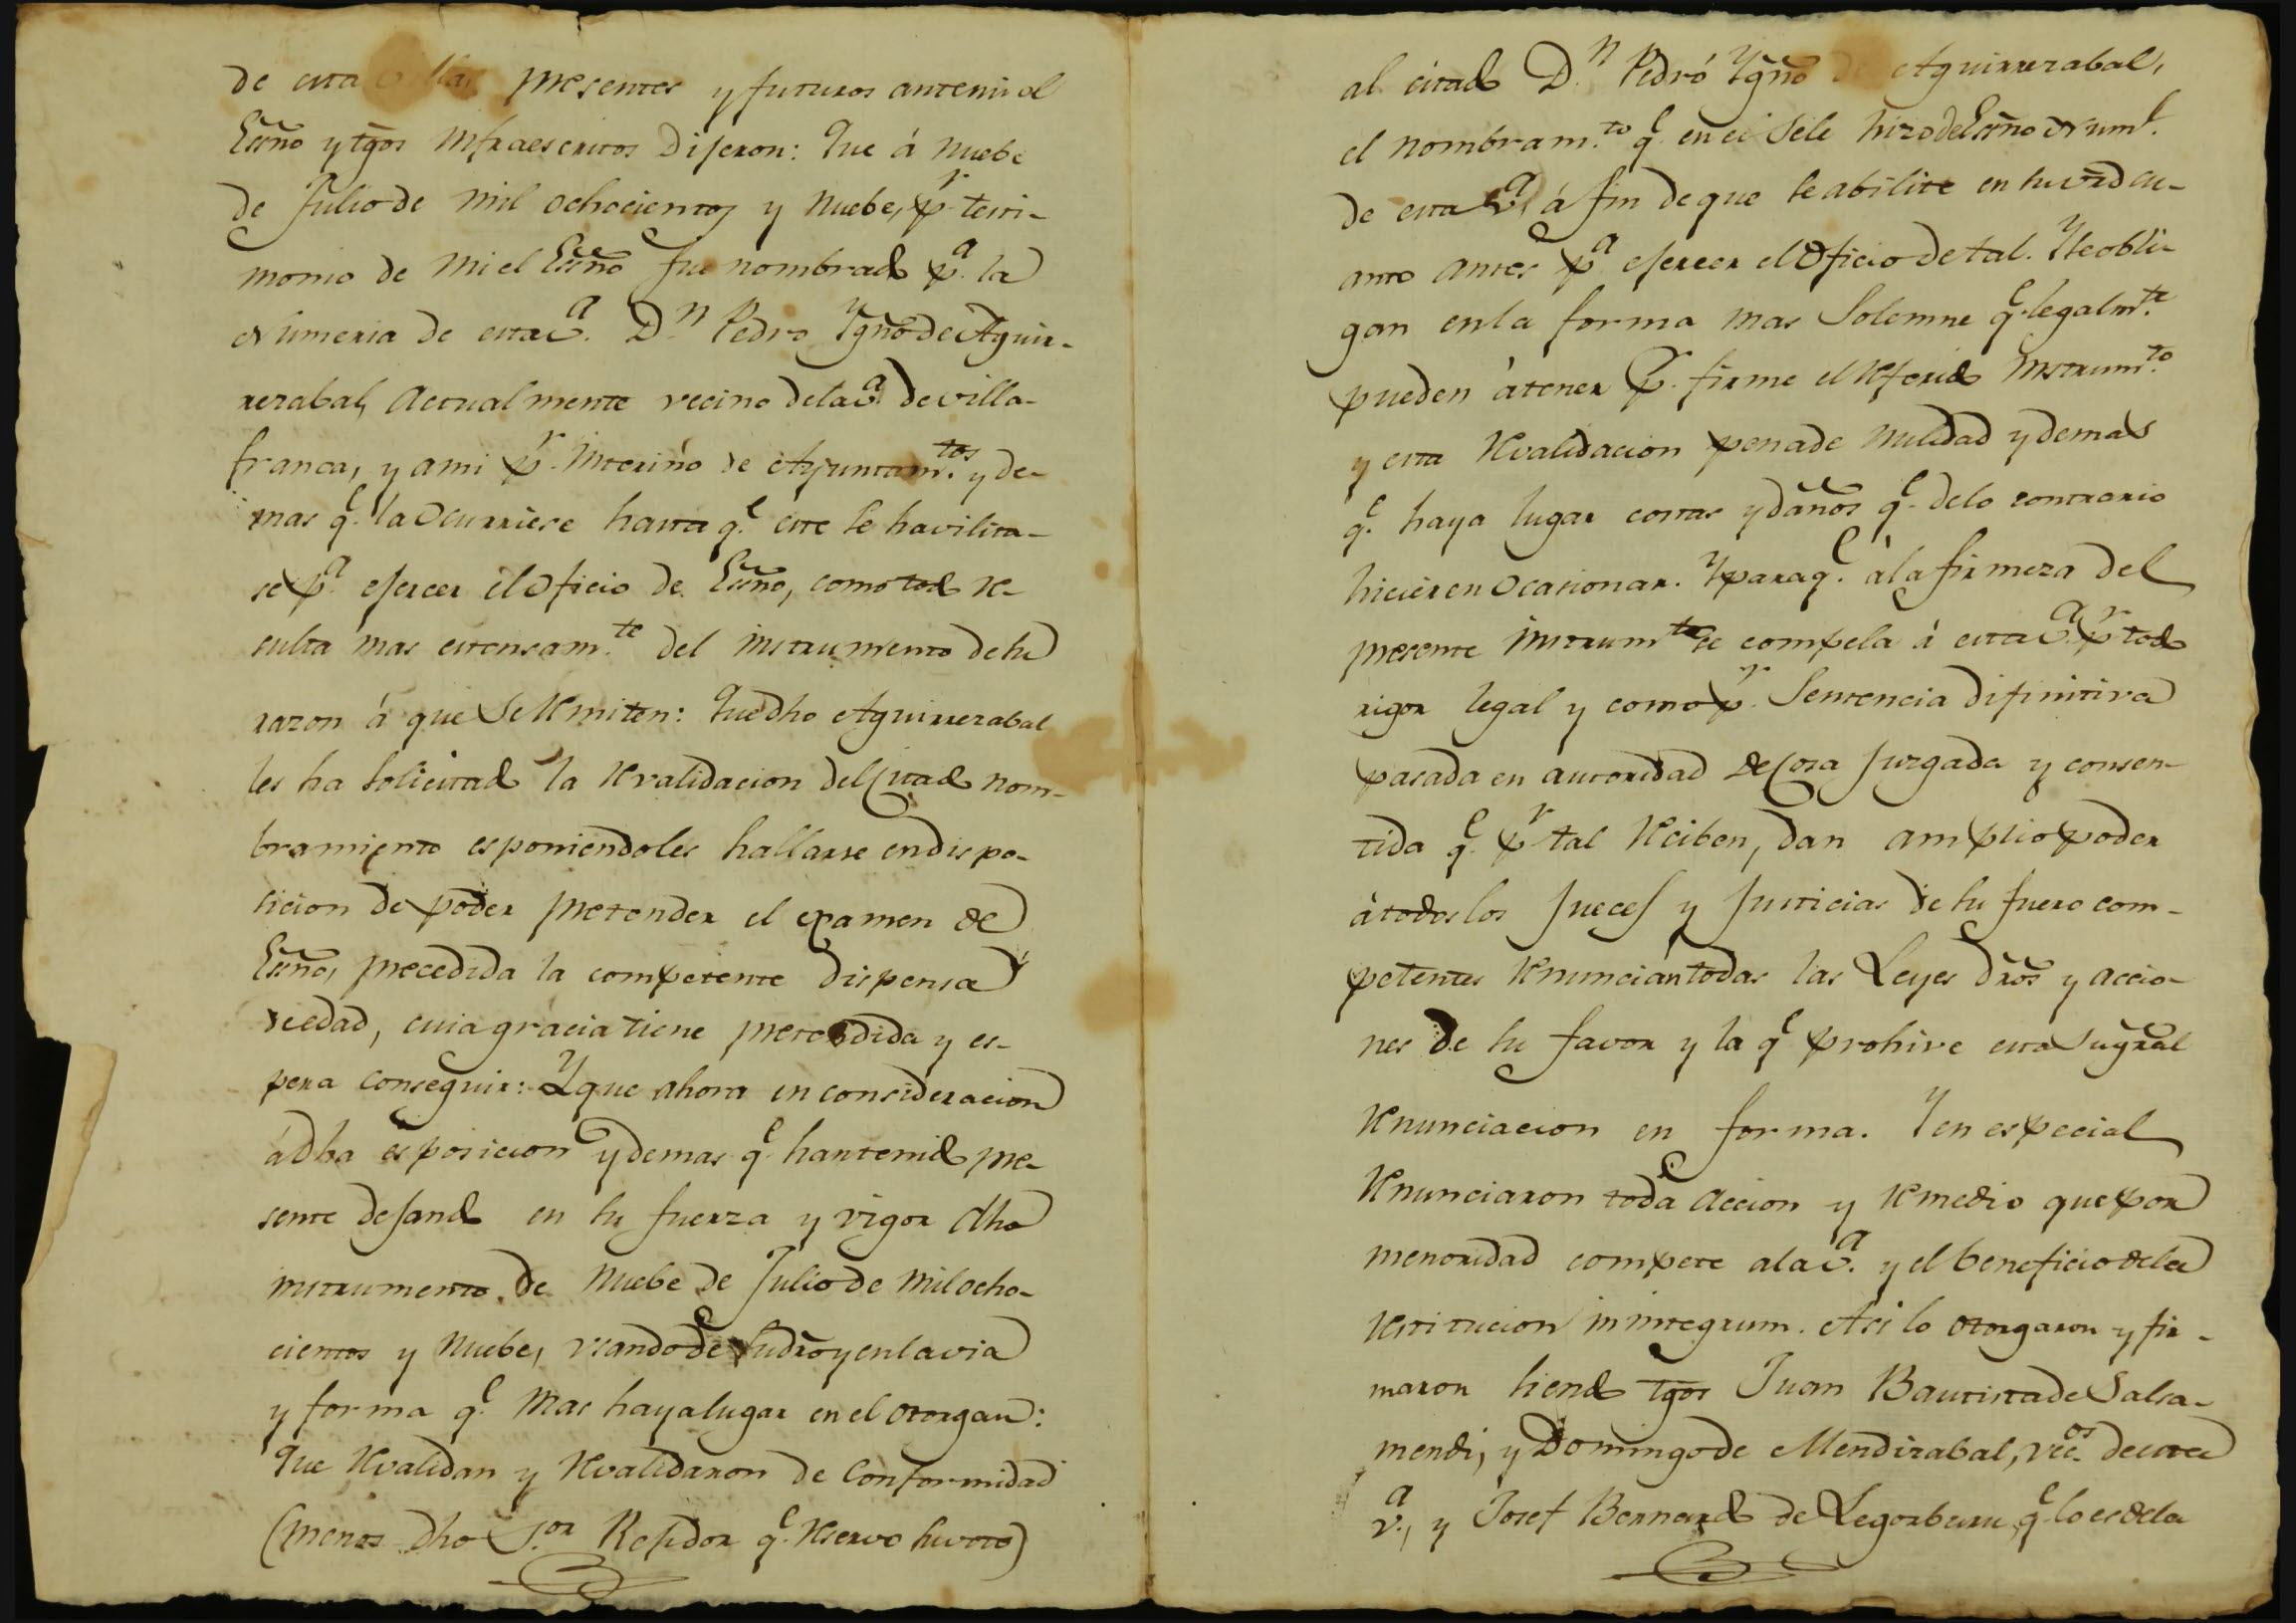 de esta villa, presentes y futuros antemi el
Esno y tgos infraescritos Dijeron: Que á nuebe
de Julio de mil ochocientos y nuebe, pr. testi-
monio de mi el Esño fue nombrado pa. la
Numeria de esta va. Dn. Pedro Ygno de Aguir-
rezabal, actualmente vecino de la va. de villa-
franca, y ami pr. interino de Ayuntamtos. y de-
mas qe. la ocurriese hasta qe. este se havilita-
se pa. ejercer el Oficio de Esño, como todo re-
sulta mas estensamte. del instrumento de su
razon á que se remiten: Que dho Aguirrezabal
les ha solicitado la revalidacion del Citado nom-
bramiento esponiendoles hallarse en dispo-
sicion de poder pretender el examen de
Esño, precedida la competente dispensa
de edad, cuia gracia tiene pretendida y es-
pera conseguir: Y que ahora en consideracion
á dha esposicion y demas qe. han tenido pre-
sente dejando en su fuerza y vigor dho
instrumento de nuebe de Julio de mil ocho-
cientos y nuebe, usando de su dro y en la via
y forma qe. mas haya lugar en el otorgan:
Que revalidan y revalidaron de Conformidad
(menos dho Sor. Rejidor qe. reservo su voto)
al citado Dn. Pedro Ygno de Aguirrezabal,
el nombramto. qe. en el se le hizo de Esño Numl.
de esta va. á fin de que se abilite en su vrd cu-
anto antes pa. ejercer el Oficio de tal. Y se obli-
gan en la forma mas Solemne qe. legalmte.
pueden á tener pr. firme el referido instrumto.
y esta revalidacion pena de nulidad y demas
qe. haya lugar costas y daños qe. de lo contrario
hicieren ocasionar. Y para qe. á la firmeza del
presente instrumto se compela á esta va. pr todo
rigor legal y como pr. Sentencia difinitiva
pasada en autoridad de Cosa Juzgada y consen-
tida qe. pr tal reciben, dan amplio poder
á todos los Jueces y Justicias de su fuero com-
petentes renuncian todas las Leyes dros y accio-
nes de su favor y la qe prohive esta su gral
renunciacion en forma. Y en especial
renunciaron toda accion y remedio que por
menoridad compete a la va. y el beneficio de la
restitucion in integrum. Asi lo otorgaron y fir-
maron siendo tgos Juan Bautista de Salsa-
mendi, y Domingo de Mendizabal, vecos. de esta
va., y Josef Bernardo de Legorburu qe. lo es de la